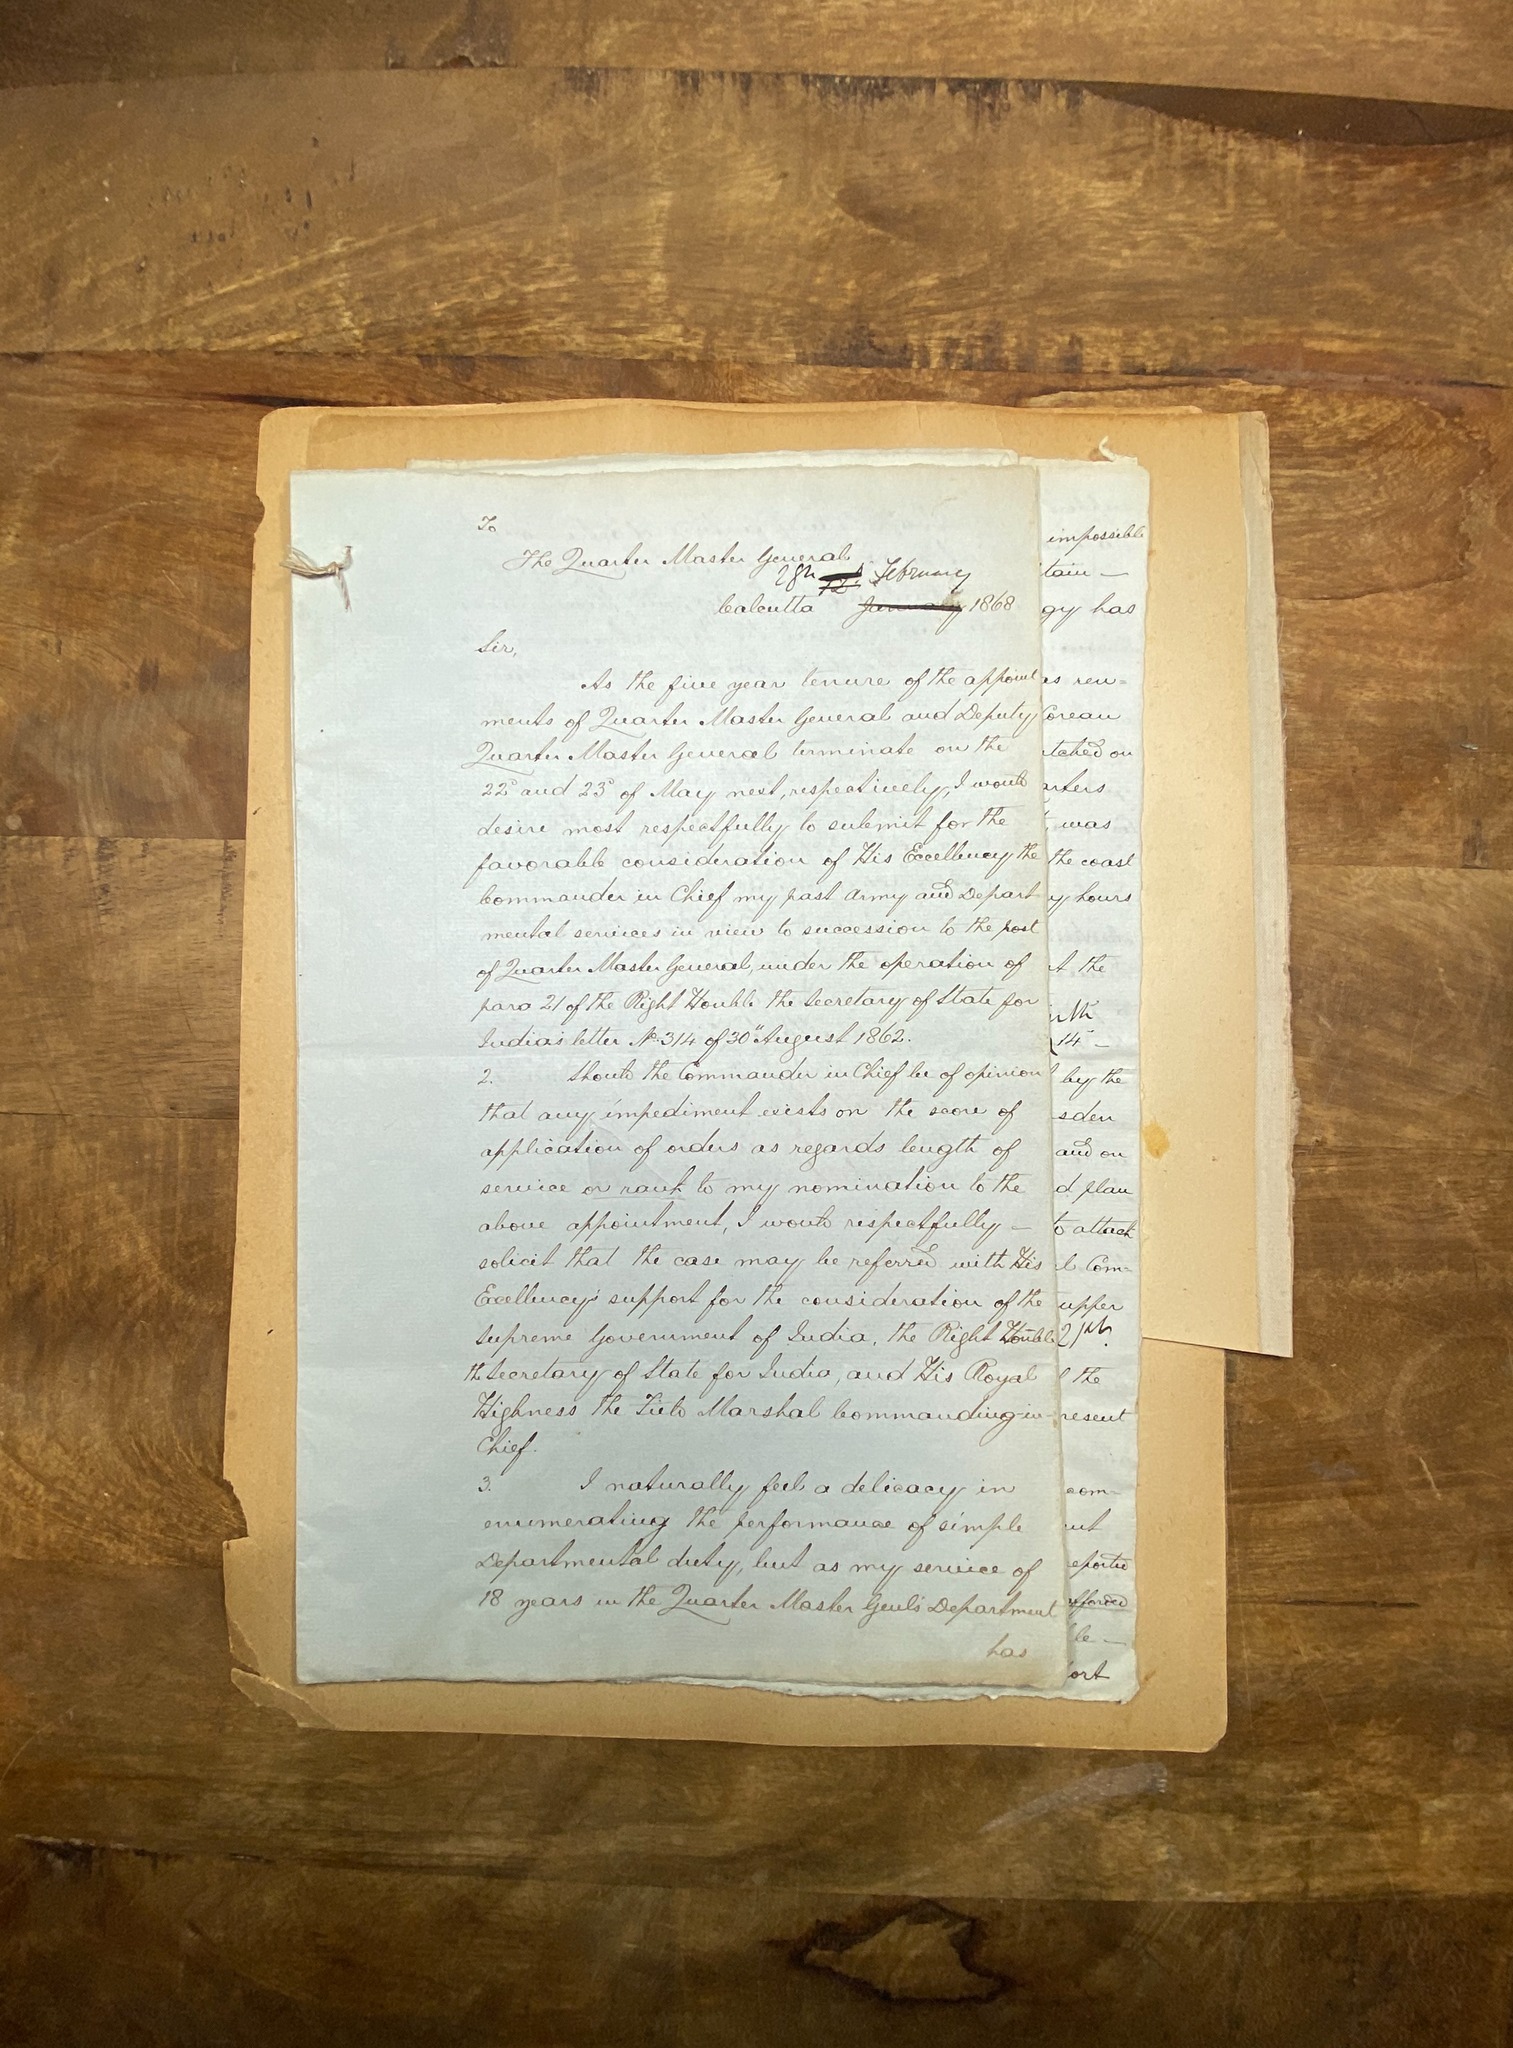 To
The Quarter Master General
28th February
Calcutta January 1868
Sir,
As the five year tenure of the appoint
ments of Quarter Master General and Deputy
Quarter Master General terminate on the
22d and 23d of May next, respectively, I would
desire most respectfully to submit for the
favorable consideration of His Excellency the
Commander in Chief my past Army and Depart-
mental services in view to succession to the post
of Quarter Master General, under the operation of
para 21 of the Right Honble the Secretary of State for
India's letter No 314 of 30" August 1862.
2. Should the Commander in Chief be of opinion
that any impediment exists on the score of
application of orders as regards length of
service or rank to my nomination to the
above appointment, I would respectfully –
solicit that the case may be referred with His
Excellency's support for the consideration of the
Supreme Government of India, the Right Honble
the Secretary of State for India, and His Royal
Highness the Field Marshal Commanding-in-
Chief.
3. I naturally feel a delicacy in
enumerating the performance of simple
Departmental duty, but as my service of
18 years in the Quarter Master Genl's Department
has
impossible
tain –
gy has
as ren=
Corean
tched on
arters
was
the coast
y hours
t the
14 –
by the
sden
and on
d plan
to attack
l Com=
upper
21st.
the
resent
com=
ut
eporte
fforded
le –
ort